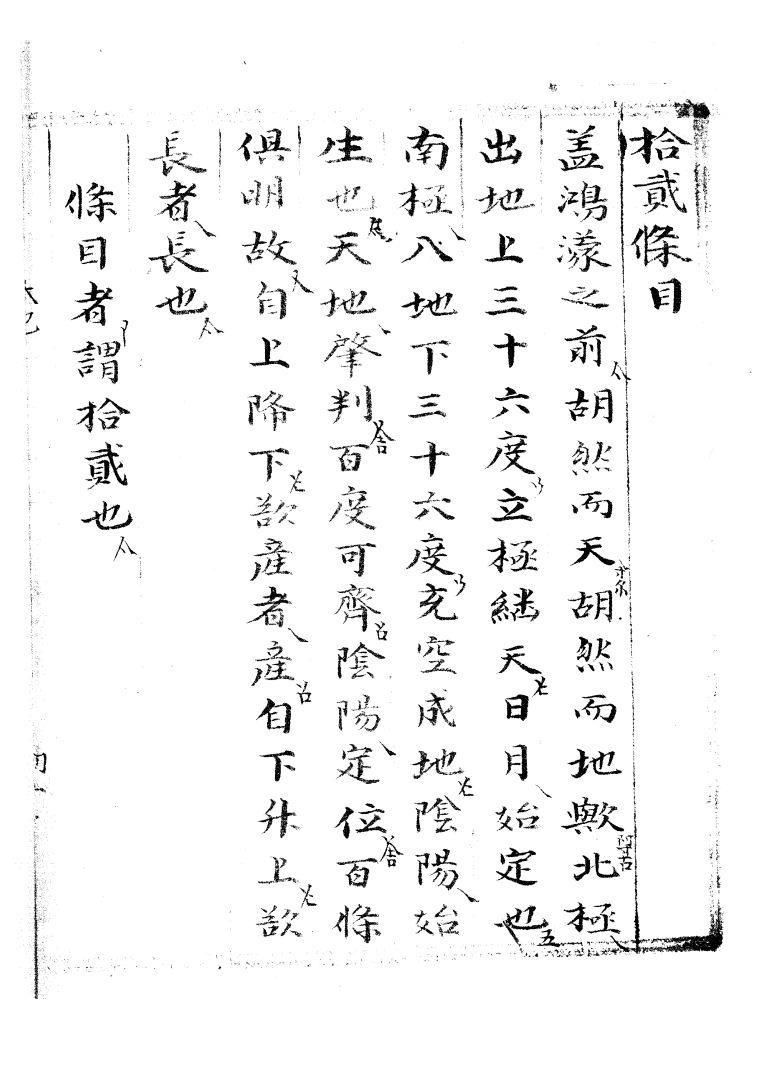 拾貳條目
盖鴻濛之前胡然而天胡然而地歟北極
出地上三十六度立極繼天日月始定也
南極入地下三十六度充空成地陰陽始
生也天地肇判百度可齊陰陽定位百條
俱明故自上降下欲産者産自下升上欲
長者長也
條目者謂拾貳也